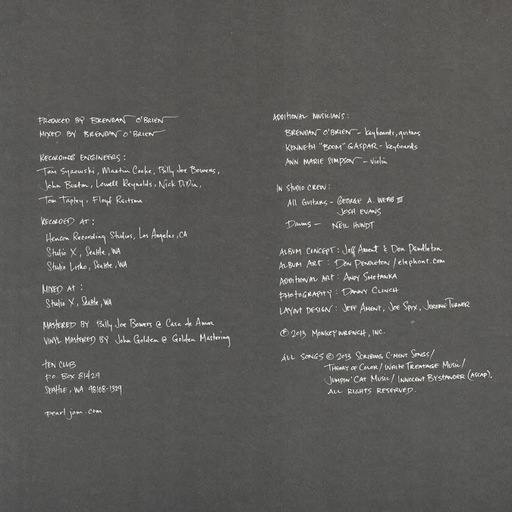 PRODUCED BY BRENDAN O'BRIEN
MIXED BY BRENDAN O'BRIEN
RECORDING ENGINEERS:
Tom Syrowski, Martin Cooke, Billy Joe Bowers,
John Burton, Lowell Reynolds, Nick DiDia,
Tom Tapley, Floyd Reitsma
RECORDED AT:
Henson Recording Studios, Los Angeles, CA
Studio X, Seattle, WA
Studio Litho, Seattle, WA
MIXED AT:
Studio X, Seattle, WA
MASTERED BY Billy Joe Bowers @ Casa de Amor
VINYL MASTERED BY John Golden @ Golden Mastering
TEN CLUB
P.O. BOX 81429
SEATTLE, WA 98108-1329
pearljam.com
ADDITIONAL MUSICIANS:
BRENDAN O'BRIEN - keyboards, guitars
KENNETH "BOOM" GASPAR - keyboards
ANN MARIE SIMPSON - violin
IN STUDIO CREW:
All Guitars - GEORGE A. WEBB III
JOSH EVANS
Drums - NEIL HUNDT
ALBUM CONCEPT: Jeff Ament & Don Pendleton
ALBUM ART: DON PENDLETON / elephont.com
ADDITIONAL ART: ANDY SMETANKA
PHOTOGRAPHY: DANNY CLINCH
LAYOUT DESIGN: JEFF AMENT, JOE SPIX, JEROME TURNER
© 2013 MONKEYWRENCH, INC.
ALL SONGS © 2013 SCRIBING C-MENT SONGS/
THEORY OF COLOR/ WRITE TREATAGE MUSIC/
JUMPIN' CAT MUSIC/ INNOCENT BYSTANDER (ASCAP).
ALL RIGHTS RESERVED.